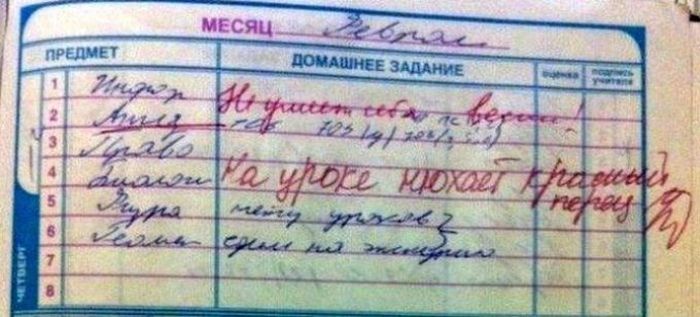 МЕСЯЦ Феврал
ПРЕДМЕТ ДОМАШНЕЕ ЗАДАНИЕ оценка подпись учителя
1 Инфор Не умеет себя вести!
2 705(д)
3 Право
4 Биологи На уроке нюхает красный перец
5 Физра нету уроков
6 Геомет
7
8
ЧЕТВЕРГ